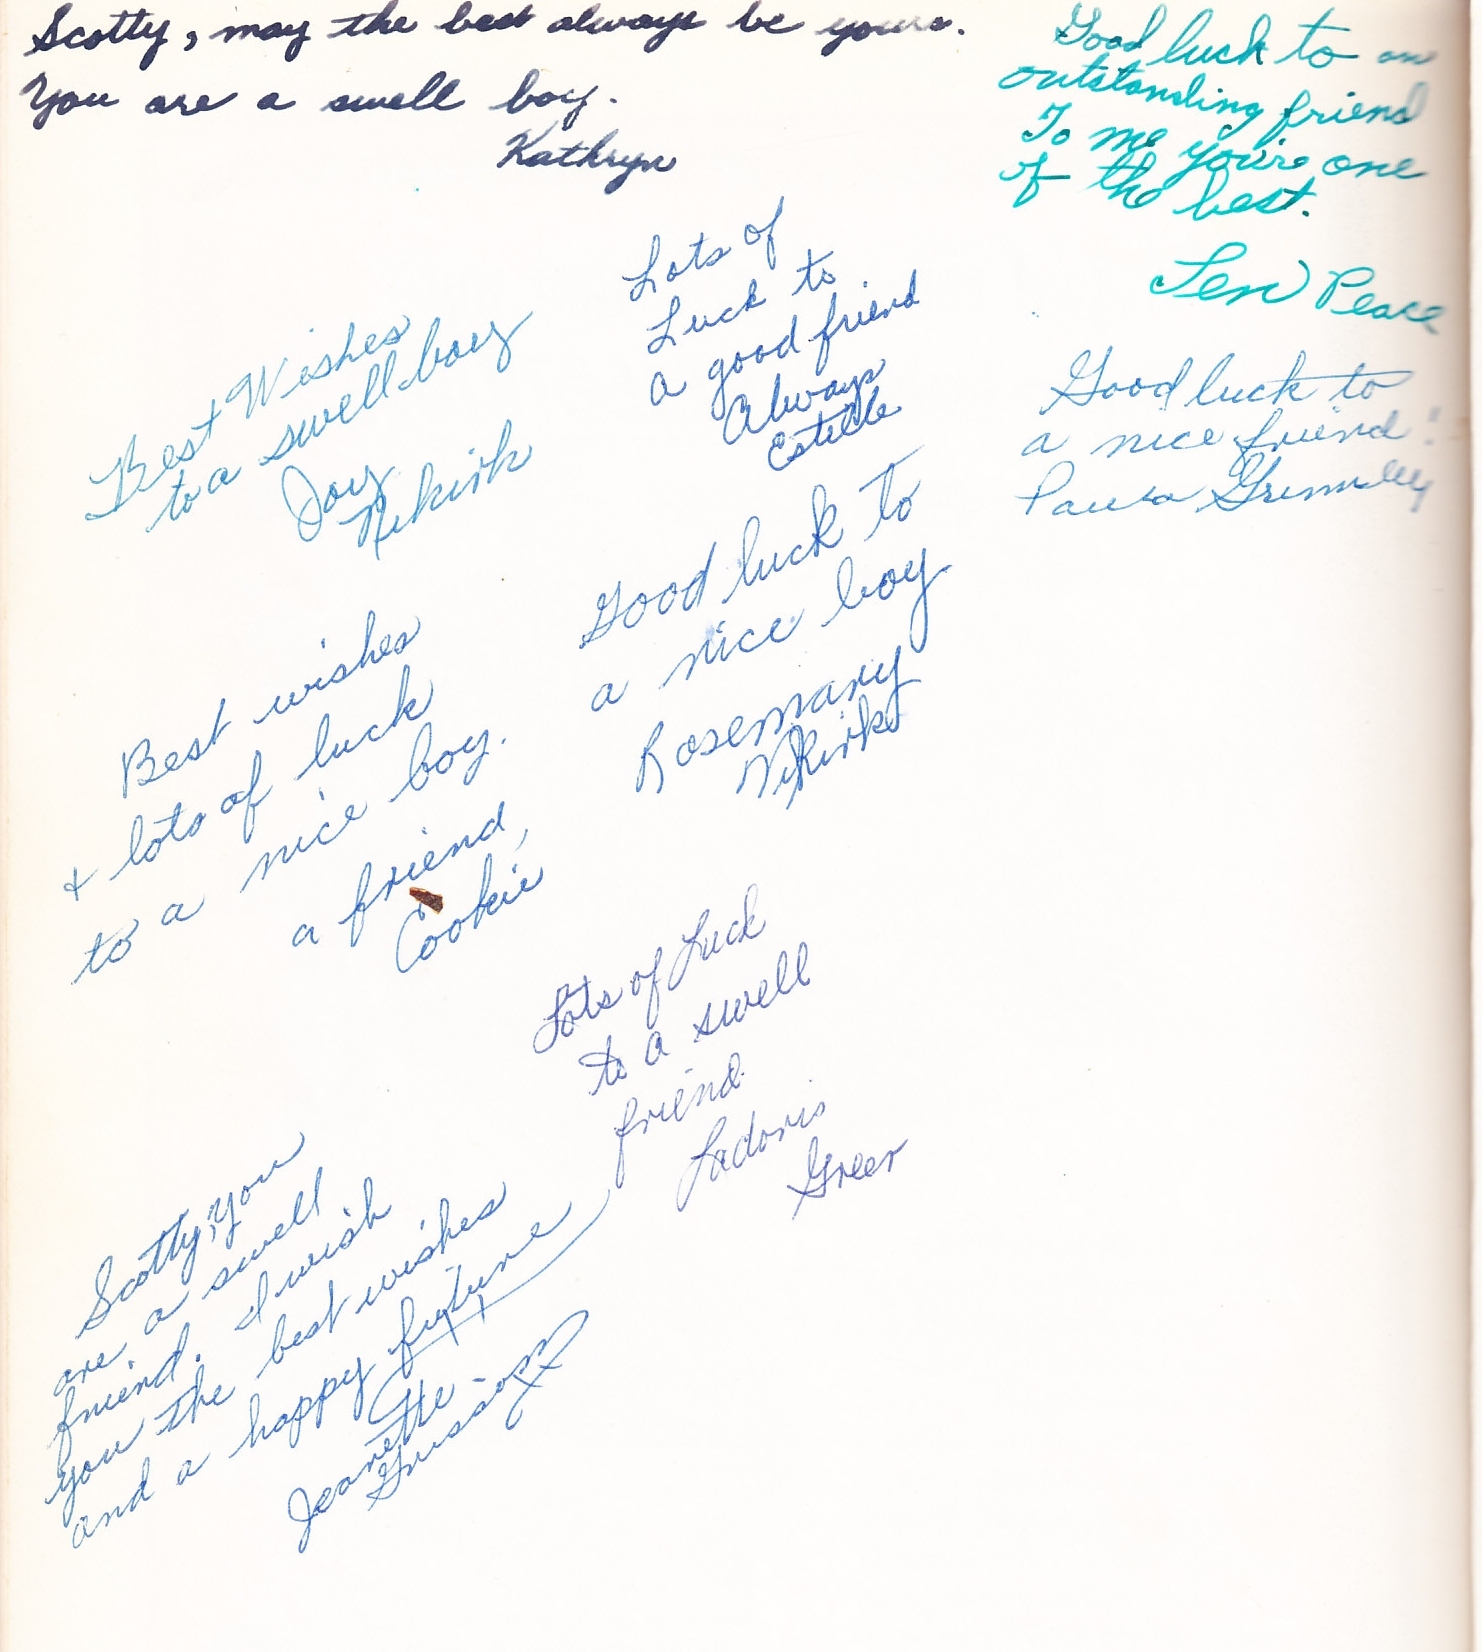 Scotty, may the best always be yours.
You are a swell boy.
Kathryn
Good luck to an
outstanding friend
To me you're one
of the best.
Len Peace
Lots of
Luck to
a good friend
Always
Estelle
Best Wishes
to a swell boy
Joy
Nikirk
Good luck to
a nice friend!
Paula Grimsley
Good luck to
a nice boy
Rosemary
Nikirk
Best wishes
+ lots of luck
to a nice boy.
a friend,
Cookie
Lots of Luck
to a swell
friend.
Ladoris
Greer
Scotty, you
are a swell
friend. I wish
you the best wishes
and a happy future
Jeanette